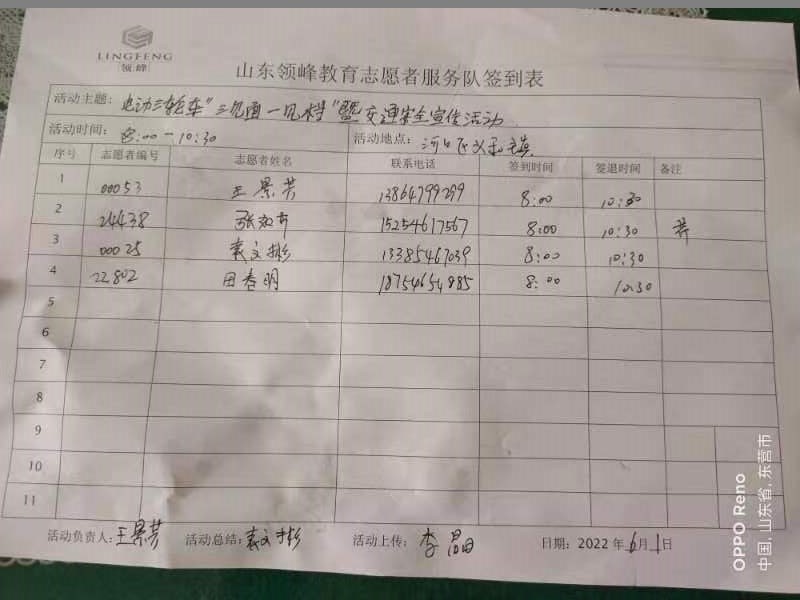 LINGFENG
领峰
山东领峰教育志愿者服务队签到表
活动主题：电动三轮车"三见面一见档"暨交通安全宣传活动
活动时间：8:00-10:30 活动地点：河口区义和镇
序号 志愿者编号 志愿者姓名 联系电话 签到时间 签退时间 备注
1 00053 王景芳 13864799299 8:00 10:30
2 24438 15254617567 8:00 10:30
3 00025 袁文彬 13385467039 8:00 10:30
4 22802 田春明 18754654885 8:00 10:30
5
6
7
8
9
10
11
活动负责人：王景芳 活动总结：袁文彬 活动上传：李 日期：2022年6月1日
OPPO Reno
中国, 山东省, 东营市